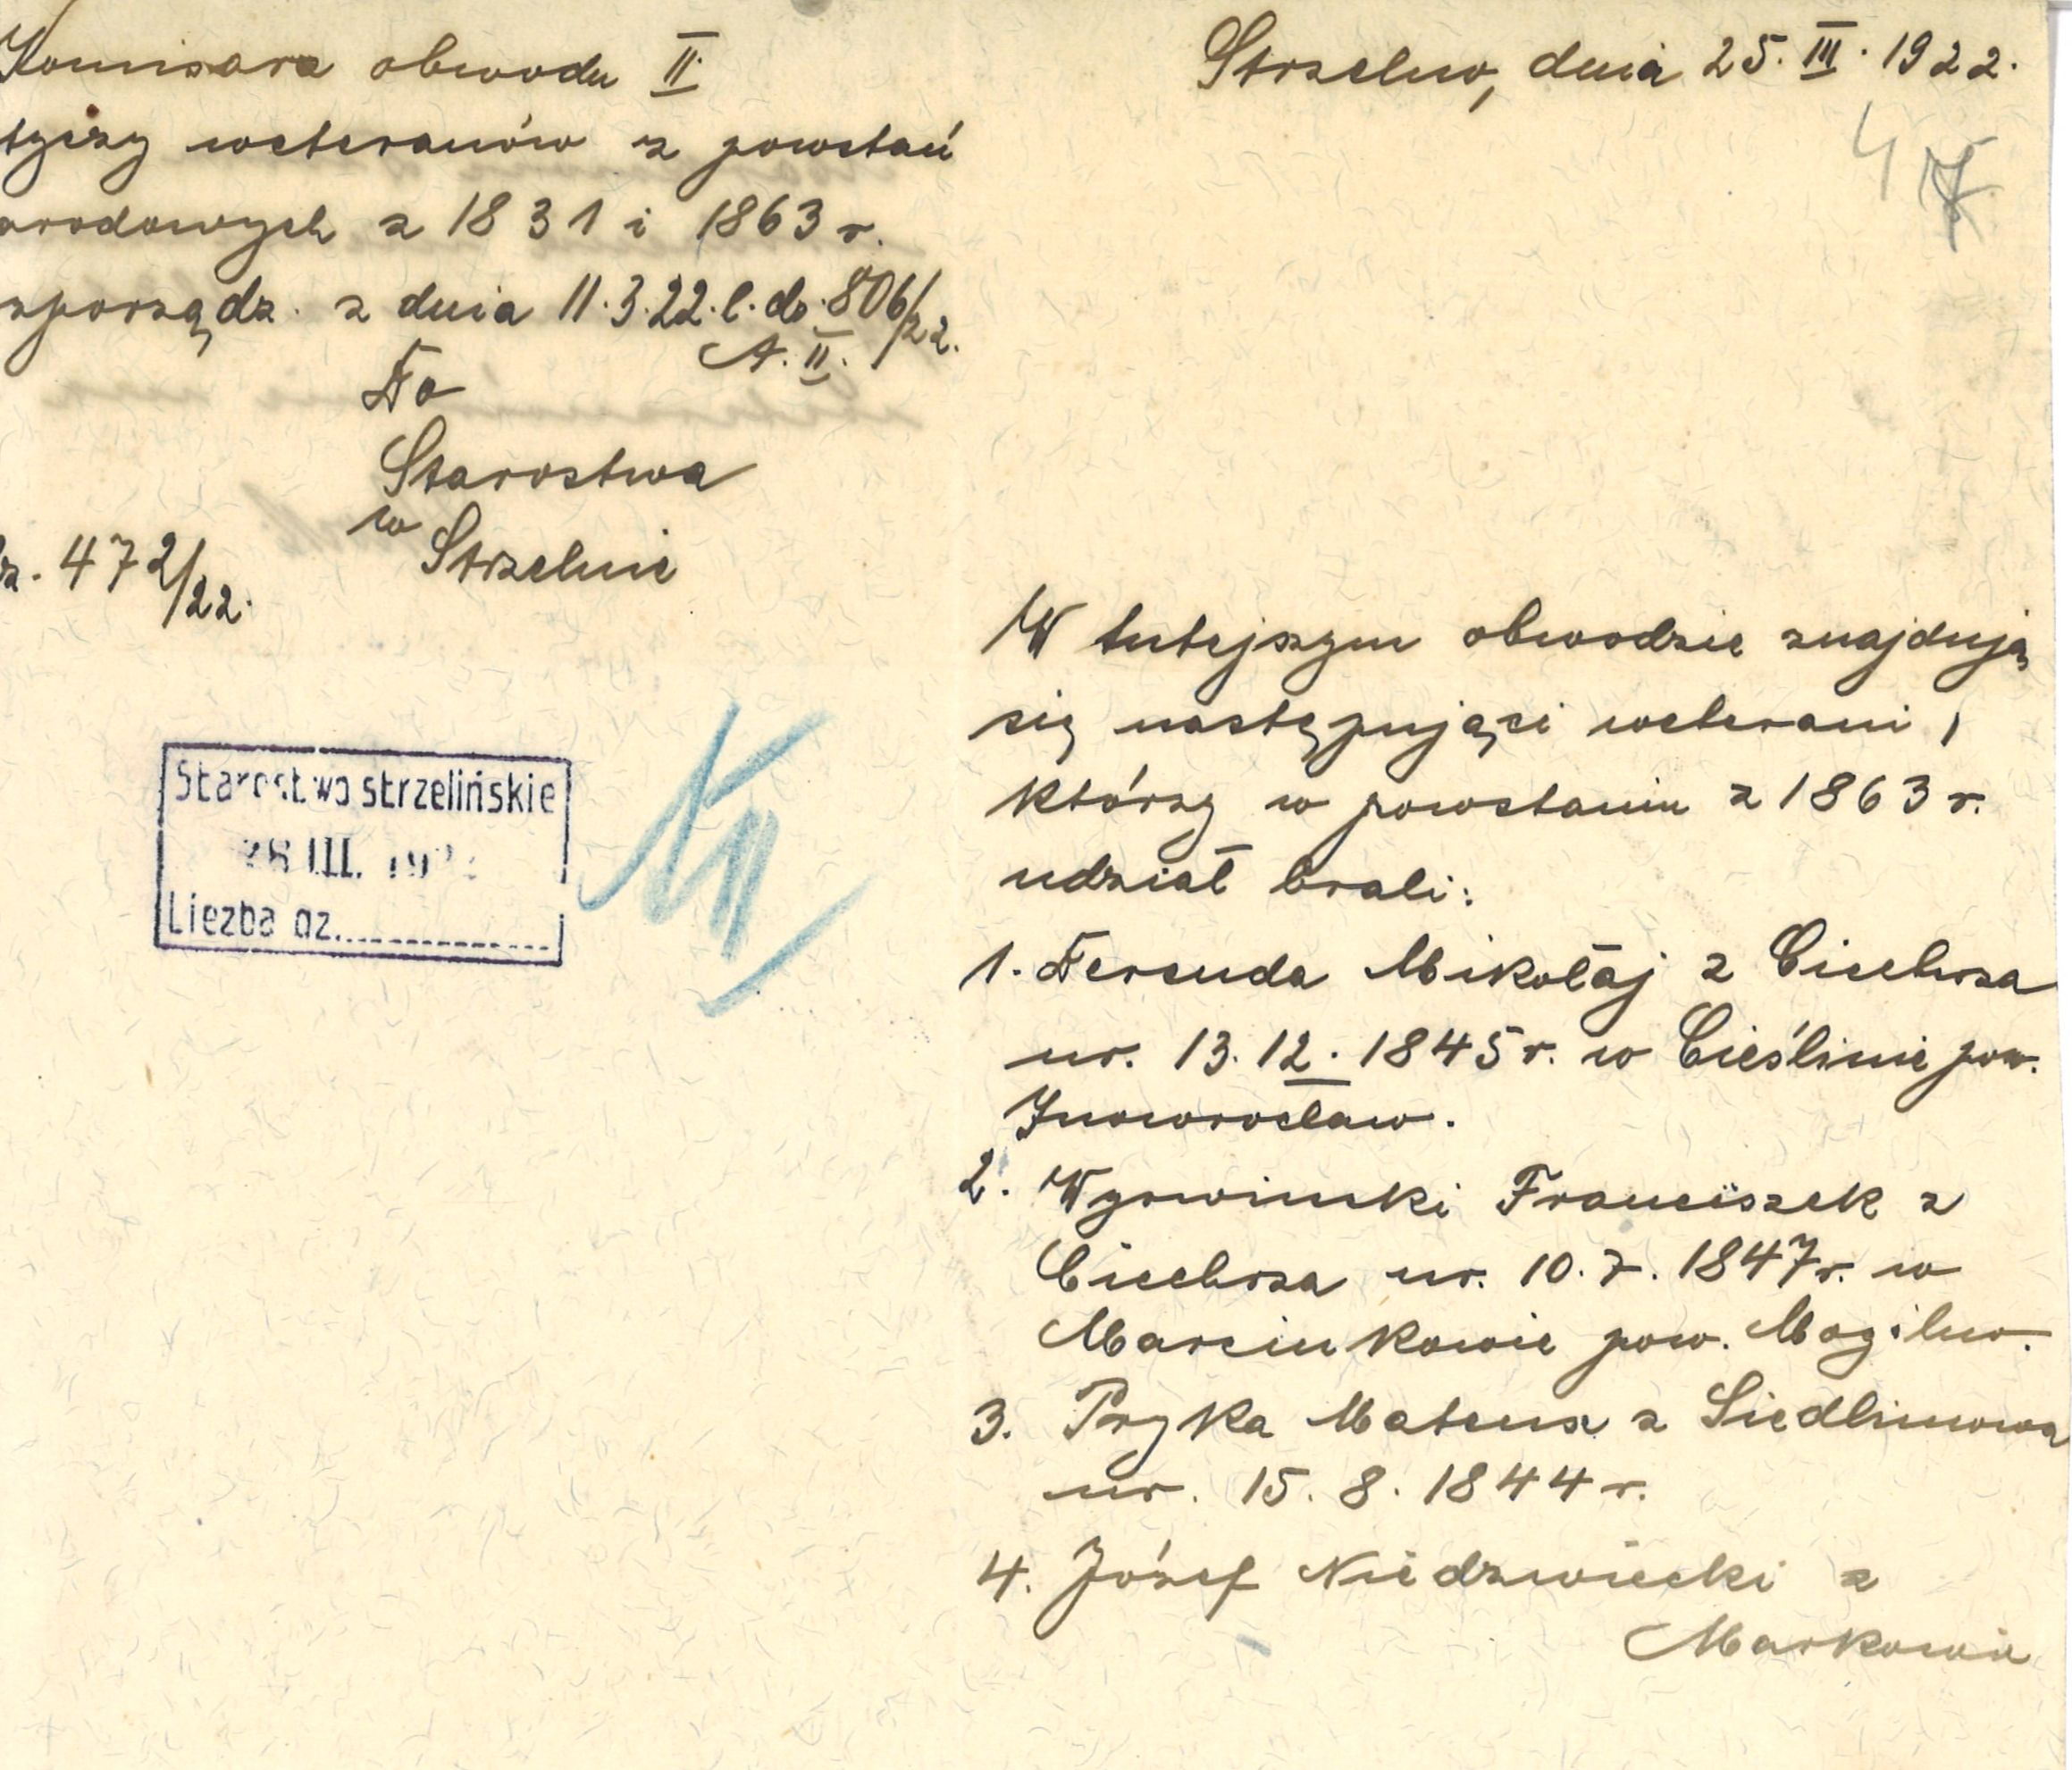 Komisarz obwodu II
Strzelno, dnia 25. III. 1922.
tyczy weteranów z powstań
arodowych z 1831 i 1863 r.
zporządz. z dnia 11.3.22. l. dz. 806/22.
A. II.
Do
Starostwa
w Strzelnie
dz. 472/22.
Starostwo strzelińskie
28 III. 192
Liczba dz.
N II
W tutejszym obwodzie znajdują
się następujący weterani,
którzy w powstaniu z 1863 r.
udział brali:
1. Derenda Mikołaj z Ciechrza
ur. 13. 12. 1845 r. w Cieślinie pow.
Inowrocław.
2. Wyrwinski Franciszek z
Ciechrza ur. 10. 7. 1847 r. w
Marcinkowie pow. Mogilno.
3. Pryka Mateusz z Siedlimowa
ur. 15. 8. 1844 r.
4. Józef Niedzwiecki z
Markowic